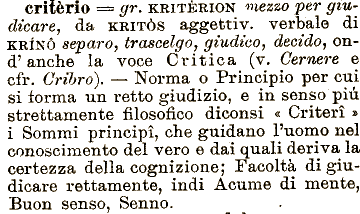 critèrio = gr. KRITÈRION mezzo per giu-
dicare, da KRITÒS aggettiv. verbale di
KRÍNÔ separo, trascelgo, giudico, decido, on-
d'anche la voce Critica (v. Cernere e
cfr. Cribro). — Norma o Principio per cui
si forma un retto giudizio, e in senso più
strettamente filosofico diconsi « Criterî »
i Sommi principî, che guidano l'uomo nel
conoscimento del vero e dai quali deriva la
certezza della cognizione; Facoltà di giu-
dicare rettamente, indi Acume di mente,
Buon senso, Senno.